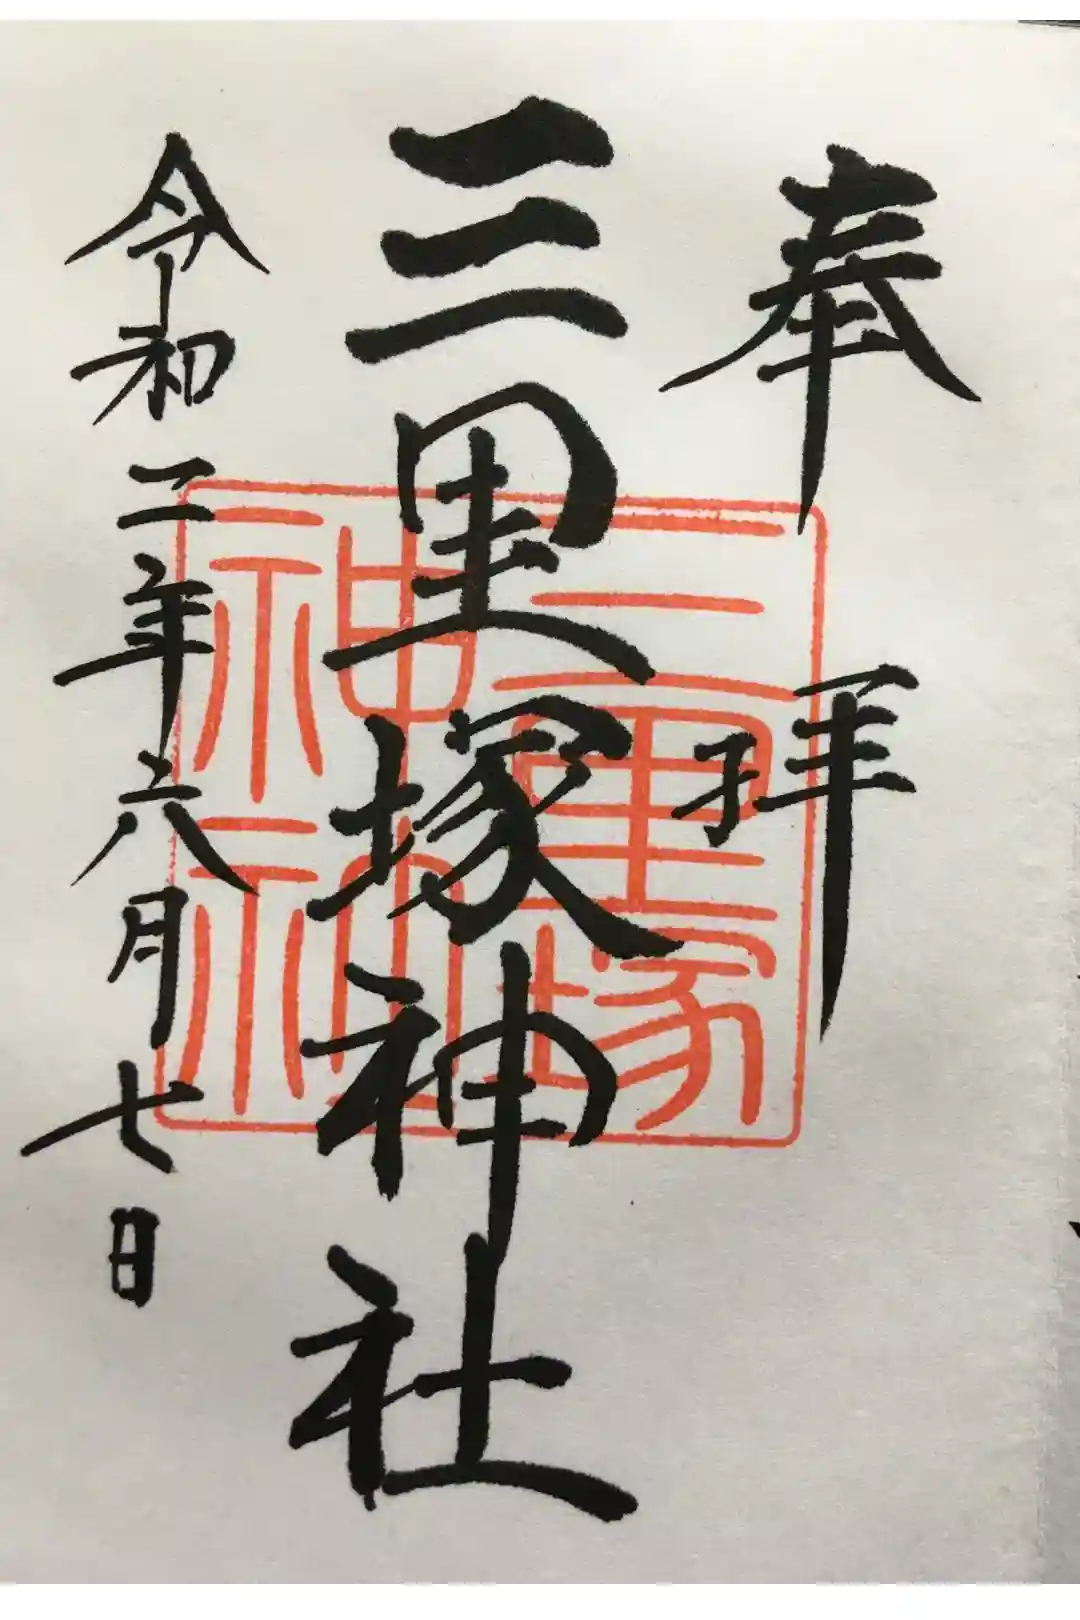 奉拝
三里塚神社
令和二年六月七日
三里塚
神社